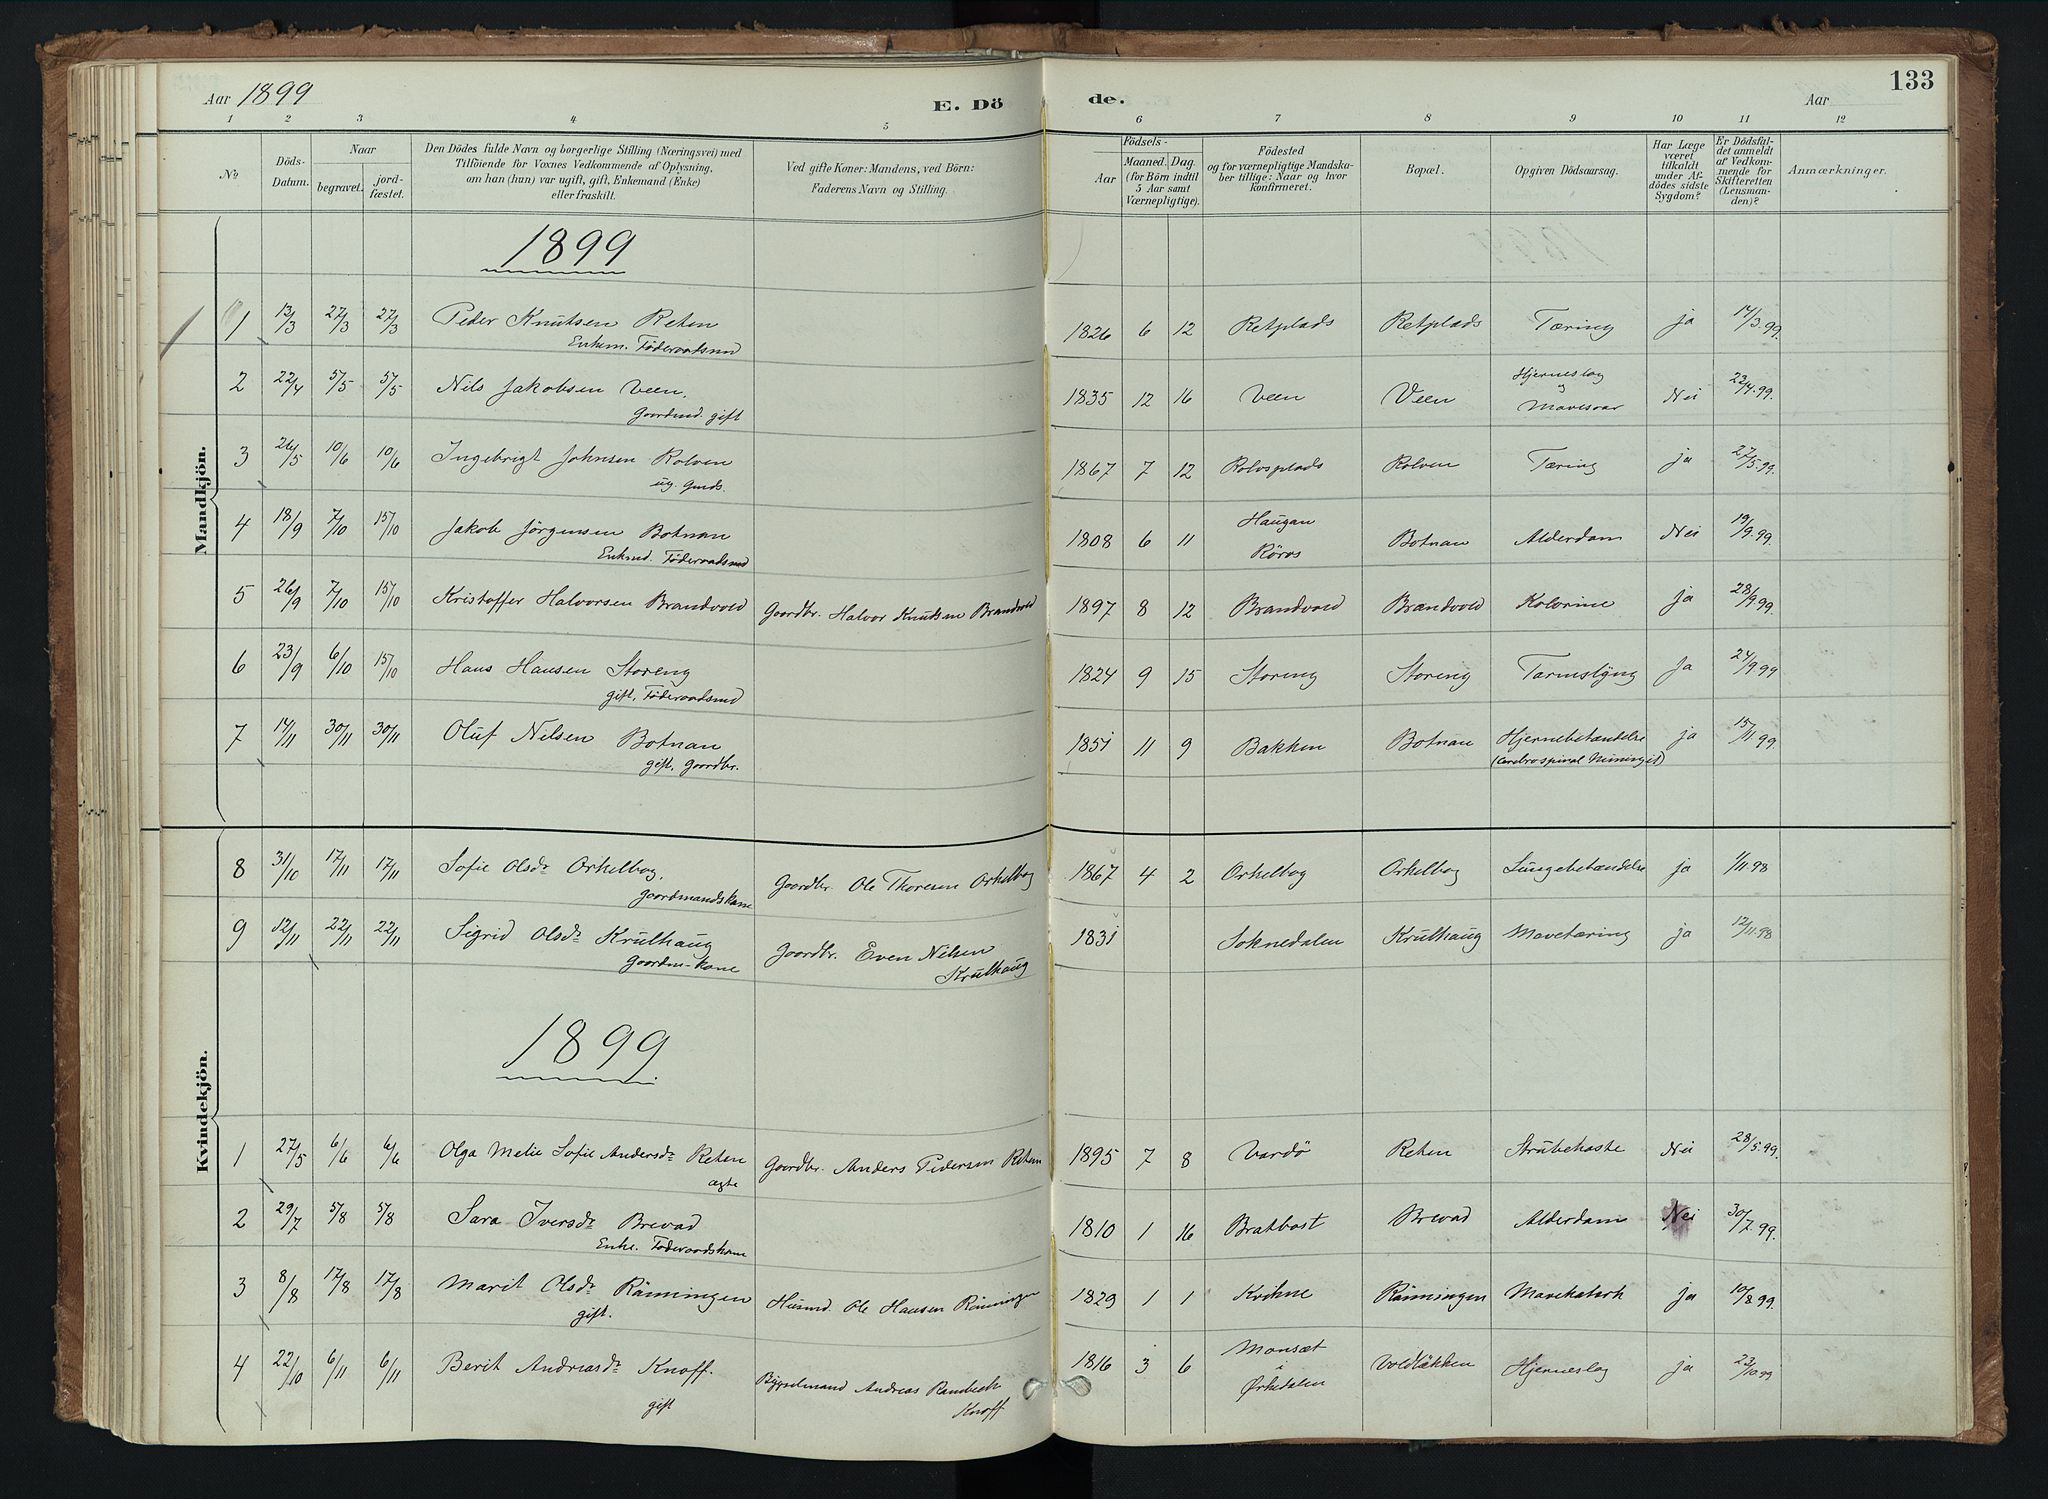 Aar 1899
E. Dö
de.
Aar
133
1 2 3 4 5 6 7 8 9 10 11 12
No
Döds-Datum.
Naar
begravet.
jord-fæstet.
Den Dödes fulde Navn og borgerlige Stilling (Næringsvei) med
Tilföiende for Voxnes Vedkommende af Oplysning,
om han (hun) var ugift, gift, Enkemand (Enke)
eller fraskilt.
Ved gifte Koner: Mandens, ved Börn:
Faderens Navn og Stilling.
Födsels-
Aar
Maaned. Dag.
(for Börn indtil
5 Aar samt
Værnepligtige).
Födested
og for værnepligtige Mandska-
ber tillige: Naar og hvor
konfirmeret.
Bopæl.
Opgiven Dödsaarsag.
Har Læge
været
tilkaldt
under Af-
dödes sidste
Sygdom?
Er Dödsfal-
det anmeldt
af Vedkom-
mende for
Skifteretten
(Lensman-
den)?
Anmærkninger.
Mandkjön.
1899
1 13/3 27/3 27/3 Peder Knutsen Reten 1826 6 12 Retplads Retplads Tæring ja 14/3.99.
Enkem. Föderaadsmd
2 22/4 5/5 5/5 Nils Jakobsen Veen. 1835 12 16 Veen Veen Hjerneslag og Mavesaar Nei 23/4.99.
Gaardmd. gift
3 26/5 10/6 10/6 Ingebrigt Johnsen Rolven 1867 7 12 Rolvsplads Rolven Tæring ja 27/5.99.
ug. Gmds.
4 18/9 7/10 15/10 Jakob Jörgensen Botnan 1808 6 11 Haugan Röros Botnan Alderdom Nei 19/9.99.
Enkmd. Föderaadsmd
5 26/9 7/10 15/10 Kristoffer Halvorsen Brandvold Gaardbr. Halvor Knutsen Brandvold 1897 8 12 Brandvold Brandvold Kolerine ja 28/9.99.
6 23/9 6/10 15/10 Hans Hansen Storeng 1824 9 15 Storeng Storeng Tarmslyng Ja 24/9 99
gift, Föderaadsmd
7 14/11 30/11 30/11 Oluf Nilsen Botnan 1851 11 9 Bakken Botnan Hjernebetændelse ja 15/11.99.
gift, Gaardbr. (Cerebrospinal Meningit)
Kvindekjön.
8 31/10 17/11 17/11 Sofie Olsdr Orkelbog. Gaardbr. Ole Thoresen Orkelbog 1867 4 2 Orkelbog Orkelbog Lungebetændelse ja 1/11 98
Gaardmandskone
9 12/11 22/11 22/11 Sigrid Olsdr Krulhaug Gaardbr. Even Nilsen Krulhaug 1831 Soknedalen Krulhaug Mavetæring ja 12/11.98
Gaardm-kone
1899
1 27/5 6/6 6/6 Olga Melie Sofie Andersdr Reten Gaardbr. Anders Pedersen Reten 1895 7 8 Vardö Reten Strubehoste Nei 28/5.99.
ægte
2 29/7 5/8 5/8 Sara Iversdr Brevad 1810 1 16 Bratbost Brevad Alderdom Nei 30/7.99.
Enke. Föderaadskone
3 8/8 17/8 17/8 Marit Olsdr Rönningen Husmd. Ole Hansen Rönningen 1829 1 1 Kvikne Rönningen Mavekatarh ja 10/8 99.
gift.
4 22/10 6/11 6/11 Berit Andreasdr Knoff. Bygselmand Andreas Rambech Knoff 1816 3 6 Monsæt i Ørkedalen Voldløkken Hjerneslag ja 23/10.99
gift